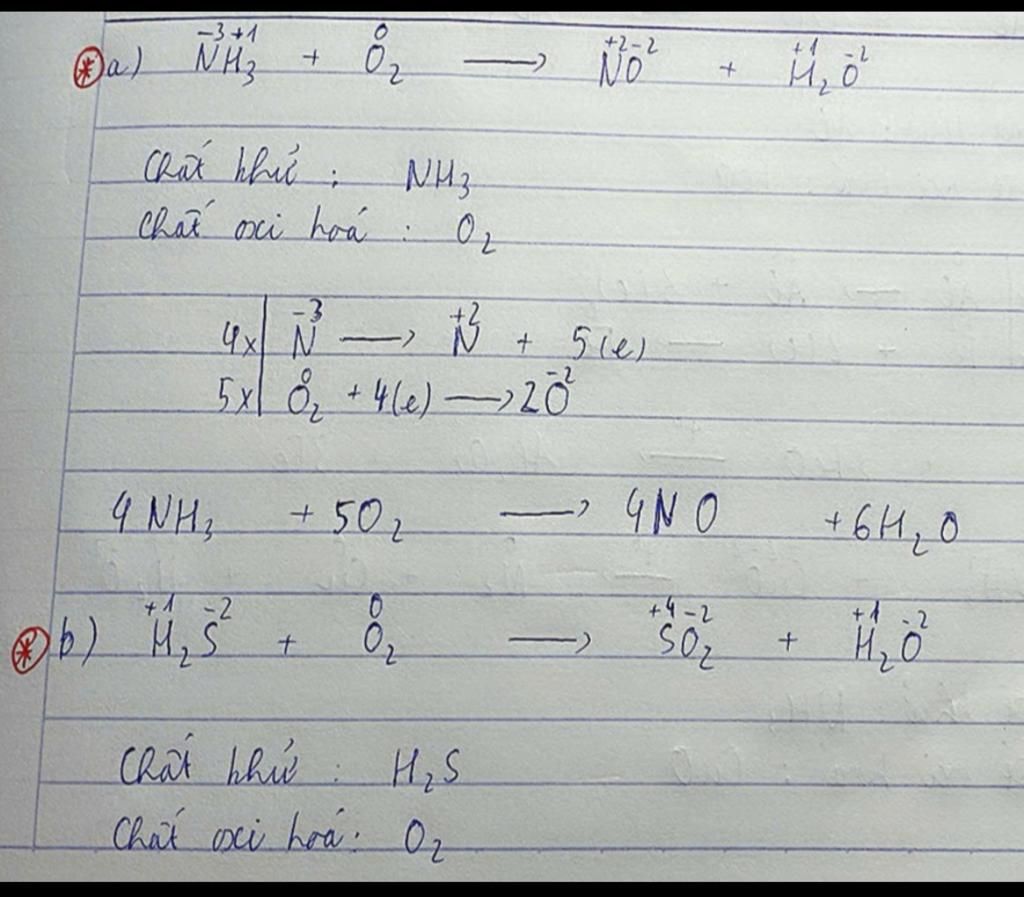 a) N⁻³H₃⁺¹ + O₂⁰ → N⁺²O⁻² + H₂⁺¹O⁻²
Chất khử : NH₃
Chất oxi hoá : O₂
4x| N⁻³ → N⁺² + 5(e)
5x| O₂⁰ + 4(e) → 2O⁻²
4NH₃ + 5O₂ → 4NO + 6H₂O
b) H₂⁺¹S⁻² + O₂⁰ → S⁺⁴O₂⁻² + H₂⁺¹O⁻²
Chất khử : H₂S
Chất oxi hoá : O₂